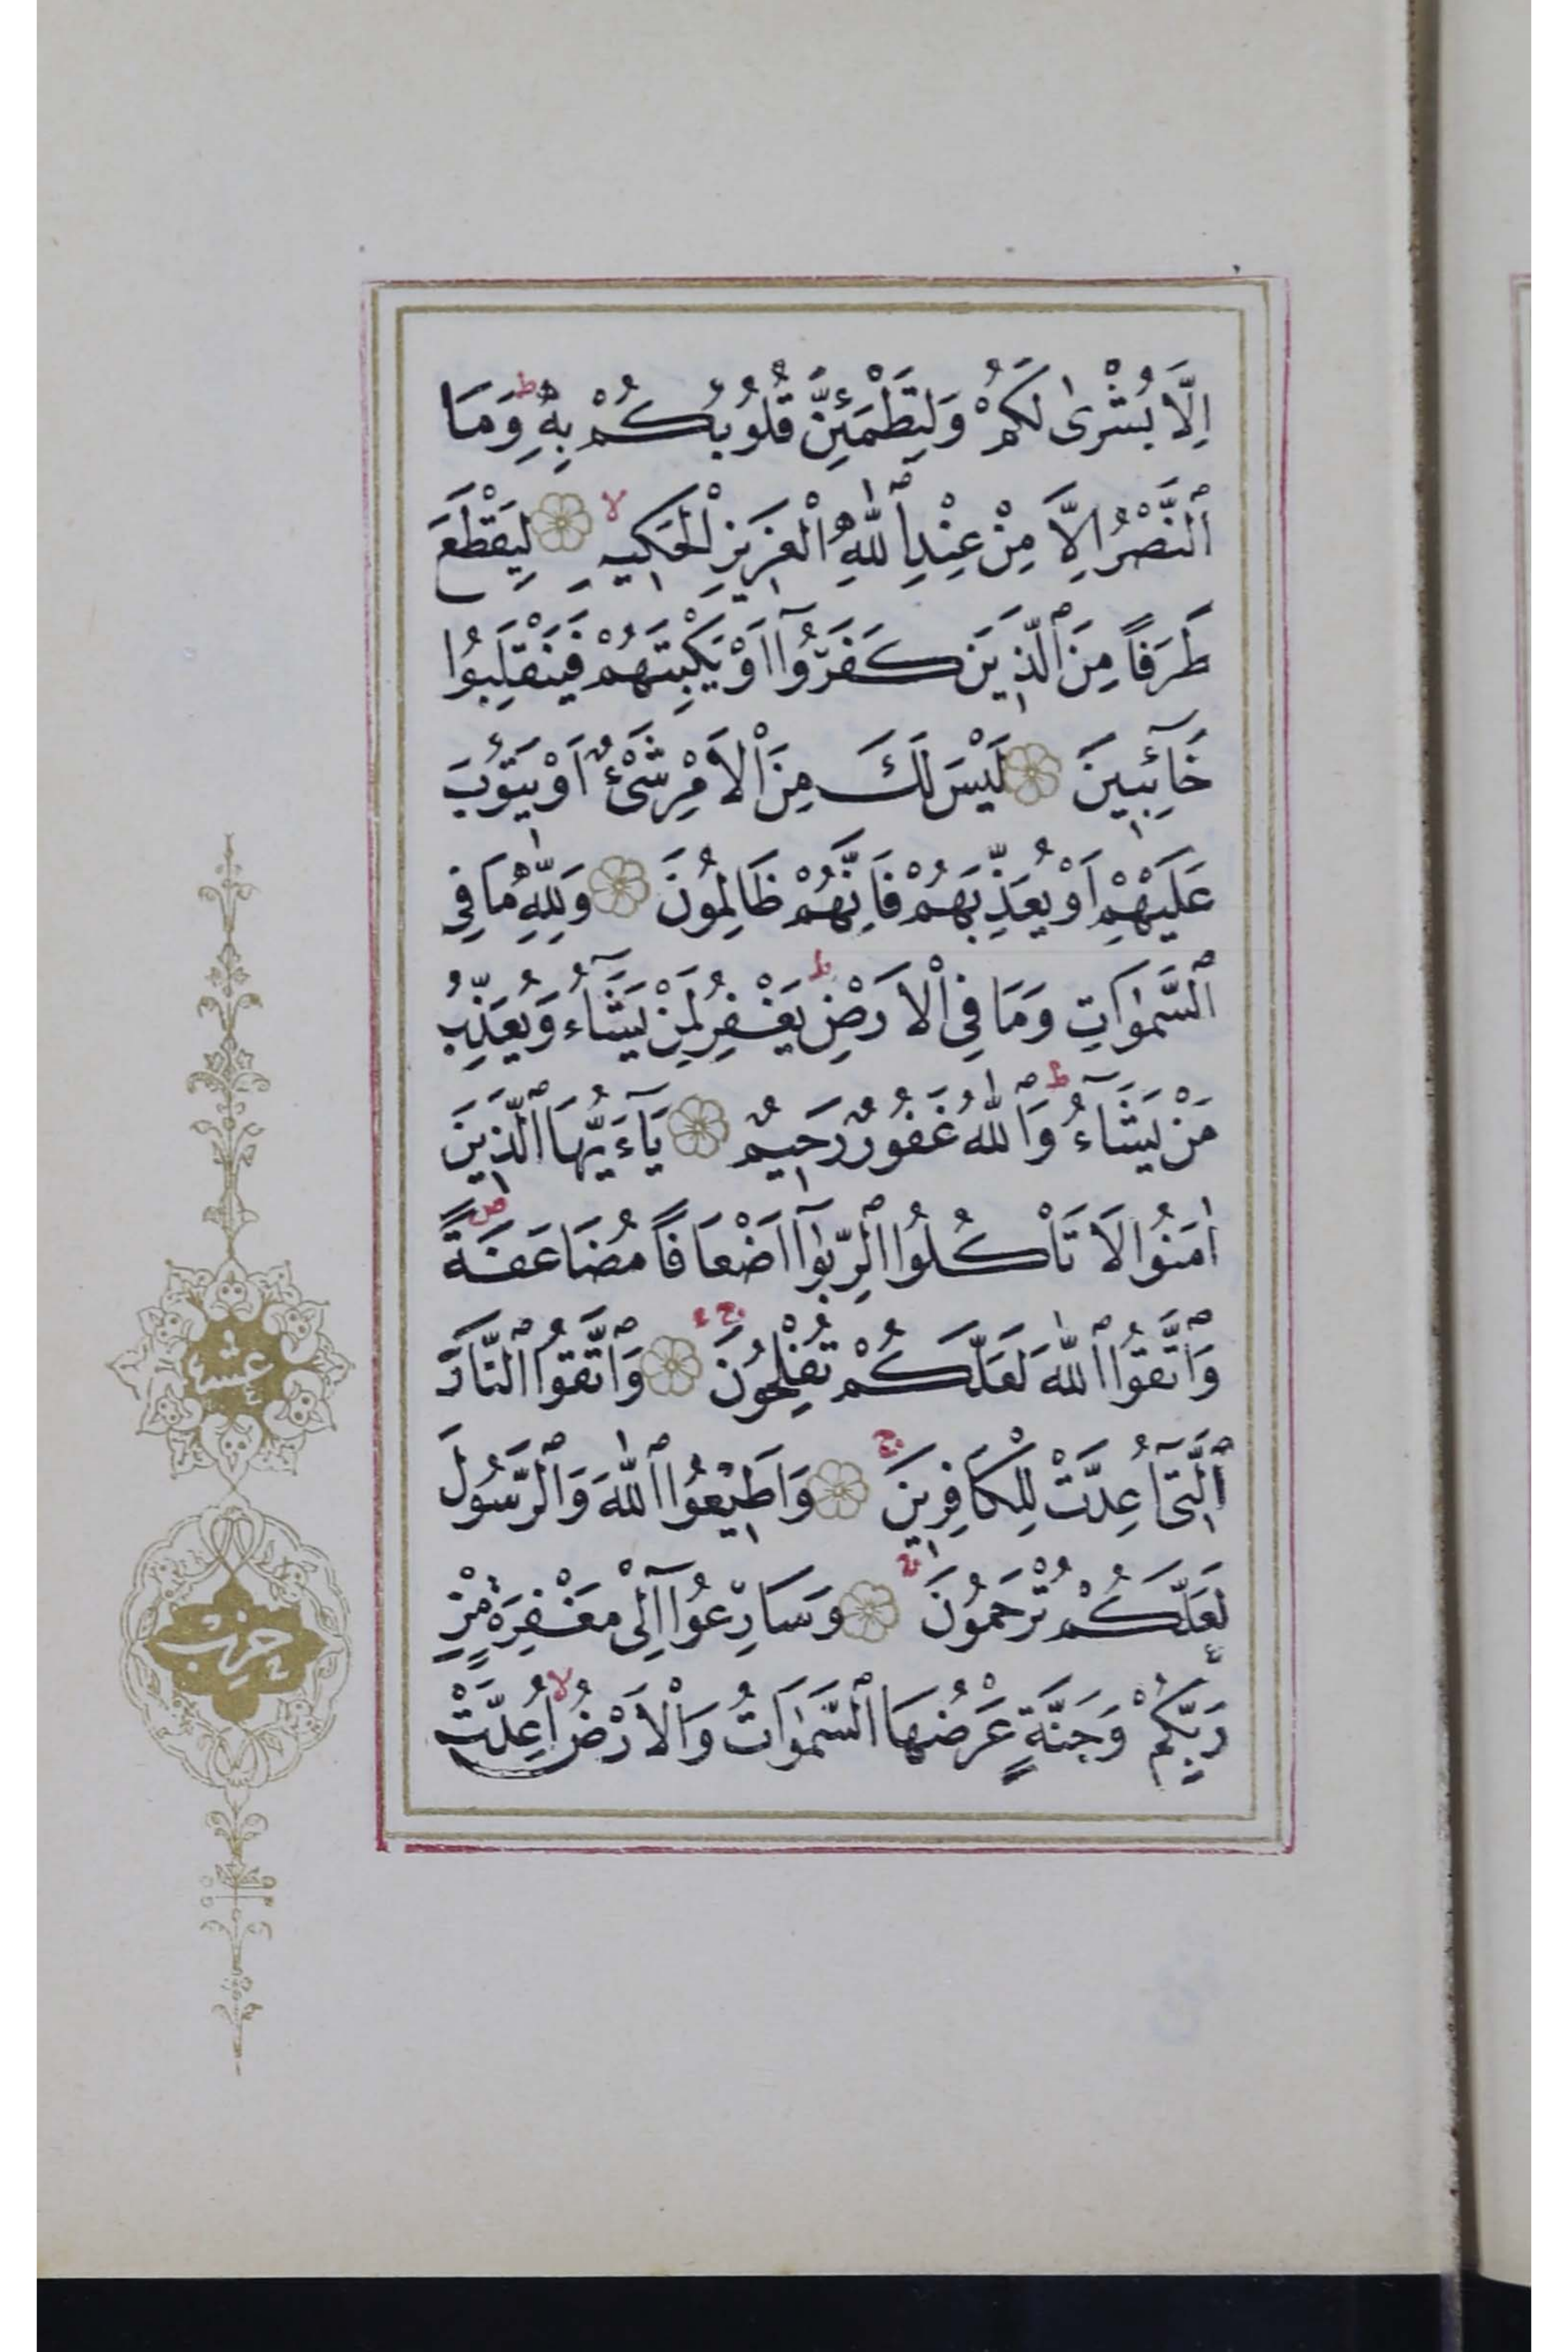 اِلَّا بُشْرٰى لَكُمْ وَلِتَطْمَئِنَّ قُلُوبُكُمْ بِهِ ۜ وَمَا
ٱلنَّصْرُ اِلَّا مِنْ عِنْدِ ٱللّٰهِ الْعَزِيزِ الْحَكِيمِ لِيَقْطَعَ
طَرَفًا مِنَ ٱلَّذِينَ كَفَرُوٓا اَوْ يَكْبِتَهُمْ فَيَنْقَلِبُوا
خَآئِبِينَ لَيْسَ لَكَ مِنَ الْاَمْرِ شَىْءٌ اَوْ يَتُوبَ
عَلَيْهِمْ اَوْ يُعَذِّبَهُمْ فَاِنَّهُمْ ظَالِمُونَ وَلِلّٰهِ مَا فِي
ٱلسَّمٰوَاتِ وَمَا فِي الْاَرْضِ ط يَغْفِرُ لِمَنْ يَشَآءُ وَيُعَذِّبُ
مَنْ يَشَآءُ ط وَٱللّٰهُ غَفُورٌ رَحِيمٌ يَآءَيُّهَا ٱلَّذِينَ
اٰمَنُوا لَا تَاْكُلُوا ٱلرِّبٰوٓا اَضْعَافًا مُضَاعَفَةً ص
وَٱتَّقُوا ٱللّٰهَ لَعَلَّكُمْ تُفْلِحُونَ ج وَٱتَّقُوا ٱلنَّارَ
ٱلَّتِٓى اُعِدَّتْ لِلْكَافِرِينَ ج وَاَطِيعُوا ٱللّٰهَ وَٱلرَّسُولَ
لَعَلَّكُمْ تُرْحَمُونَ ج وَسَارِعُوٓا اِلٰى مَغْفِرَةٍ مِنْ
رَبِّكُمْ وَجَنَّةٍ عَرْضُهَا ٱلسَّمٰوَاتُ وَالْاَرْضُ لا اُعِدَّتْ
عشر
حزب